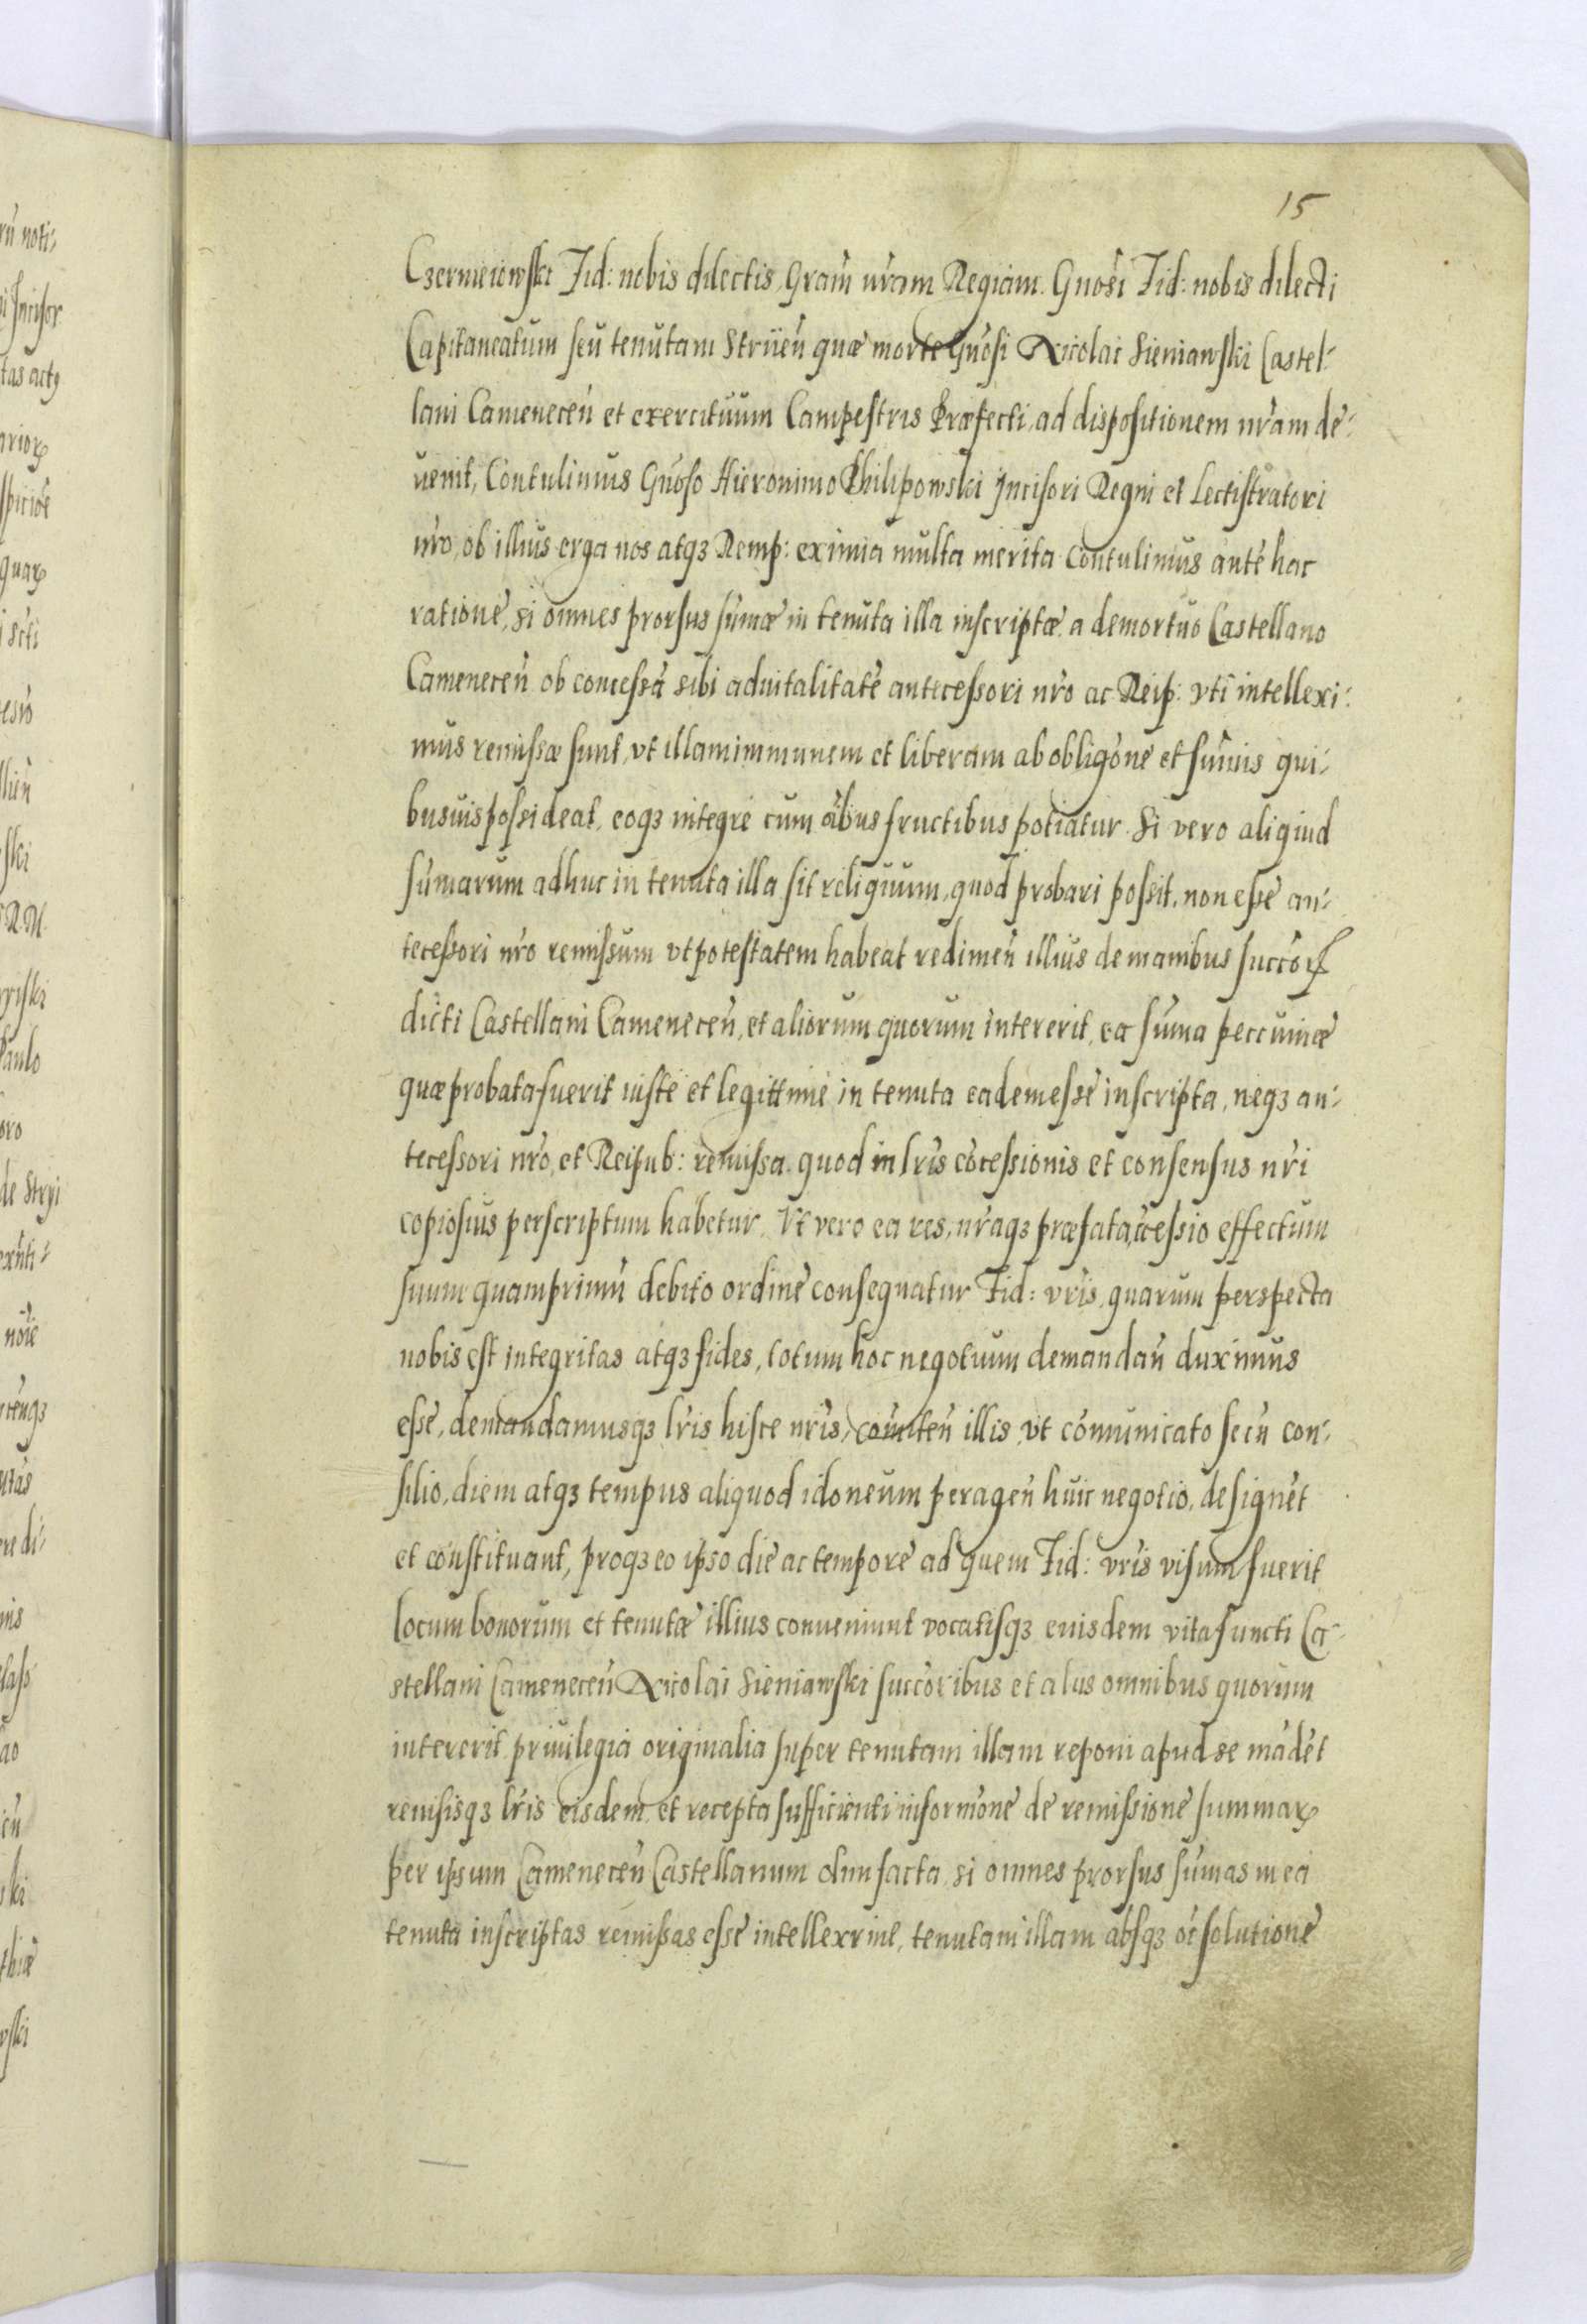 15
Czermeiowski Fid: nobis dilectis, Gram̃ nr̃am Regiam. Gnõsi Fid: nobis dilecti
Capitaneatum seu tenutam Striień quæ morte Gnõsi Nicolai Sieniawski Castel-
lani Camenecen̄ et exercituum Campestris Præfecti, ad dispositionem nr̃am de-
uenit, Contulimus Gnõso Hieronimo Philipowski Incisori Regni et Lectistratori
nr̃o, ob illius erga nos atqʒ Remp: eximia multa merita Contulimus autẽ hac
rationẽ, si omnes prorsus sum̃æ in tenuta illa inscriptæ a demortuo Castellano
Camenecen̄ ob concessã sibi aduitalitatẽ antecessori nr̃o ac Reip: vti intellexi-
mus remissæ sunt, vt illam immunem et liberam ab obligõne et sum̃is qui-
busuis possideat, eoqʒ integre cum õibus fructibus potiatur. Si vero aliquid
sum̃arum adhuc in tenuta illa sit reliquum, quod probari possit, non esse an-
tecessori nr̃o remissum vt potestatem habeat redimen̄ illius de manibus succorꝝ
dicti Castellani Camenecen̄, et aliorum quorum intererit, ea sum̃a peccuniæ
quæ probata fuerit iuste et legittime in tenuta eadem esse inscripta, neqʒ an-
tecessori nr̃o, et Reipub: remissa. quod in lr̃is cõcessionis et consensus nr̃i
copiosius perscriptum habetur. Vt vero ea res, nr̃aqʒ præfata cessio effectum
suum quamprimũ debito ordine consequatur Fid: vr̃is, quarum perspecta
nobis est integritas atqʒ fides, totum hoc negotium demandan̄ duximus
esse, demandamusqʒ lr̃is hisce nr̃is, com̃itten̄ illis, vt com̃unicato secũ con-
silio, diem atqʒ tempus aliquod idoneum peragen̄ huic negotio, designẽt
et constituant, proqʒ eo ipso die ac tempore ad quem Fid: vr̃is visum fuerit
locum bonorum et tenutæ illius conueniant vocatisqʒ eiusdem vita functi Ca-
stellani Camenecen̄ Nicolai Sieniawski succoribus et aliis omnibus quorum
intererit, priuilegia originalia super tenutam illam reponi apud se mãdẽt
reuisisqʒ lr̃is eisdem, et recepta sufficienti informõne de remissione summarꝝ
per ipsum Camenecen̄ Castellanum olim facta, si omnes prorsus sum̃as in ea
tenuta inscriptas remissas esse intellexerint, tenutam illam absqʒ oĩ solutione